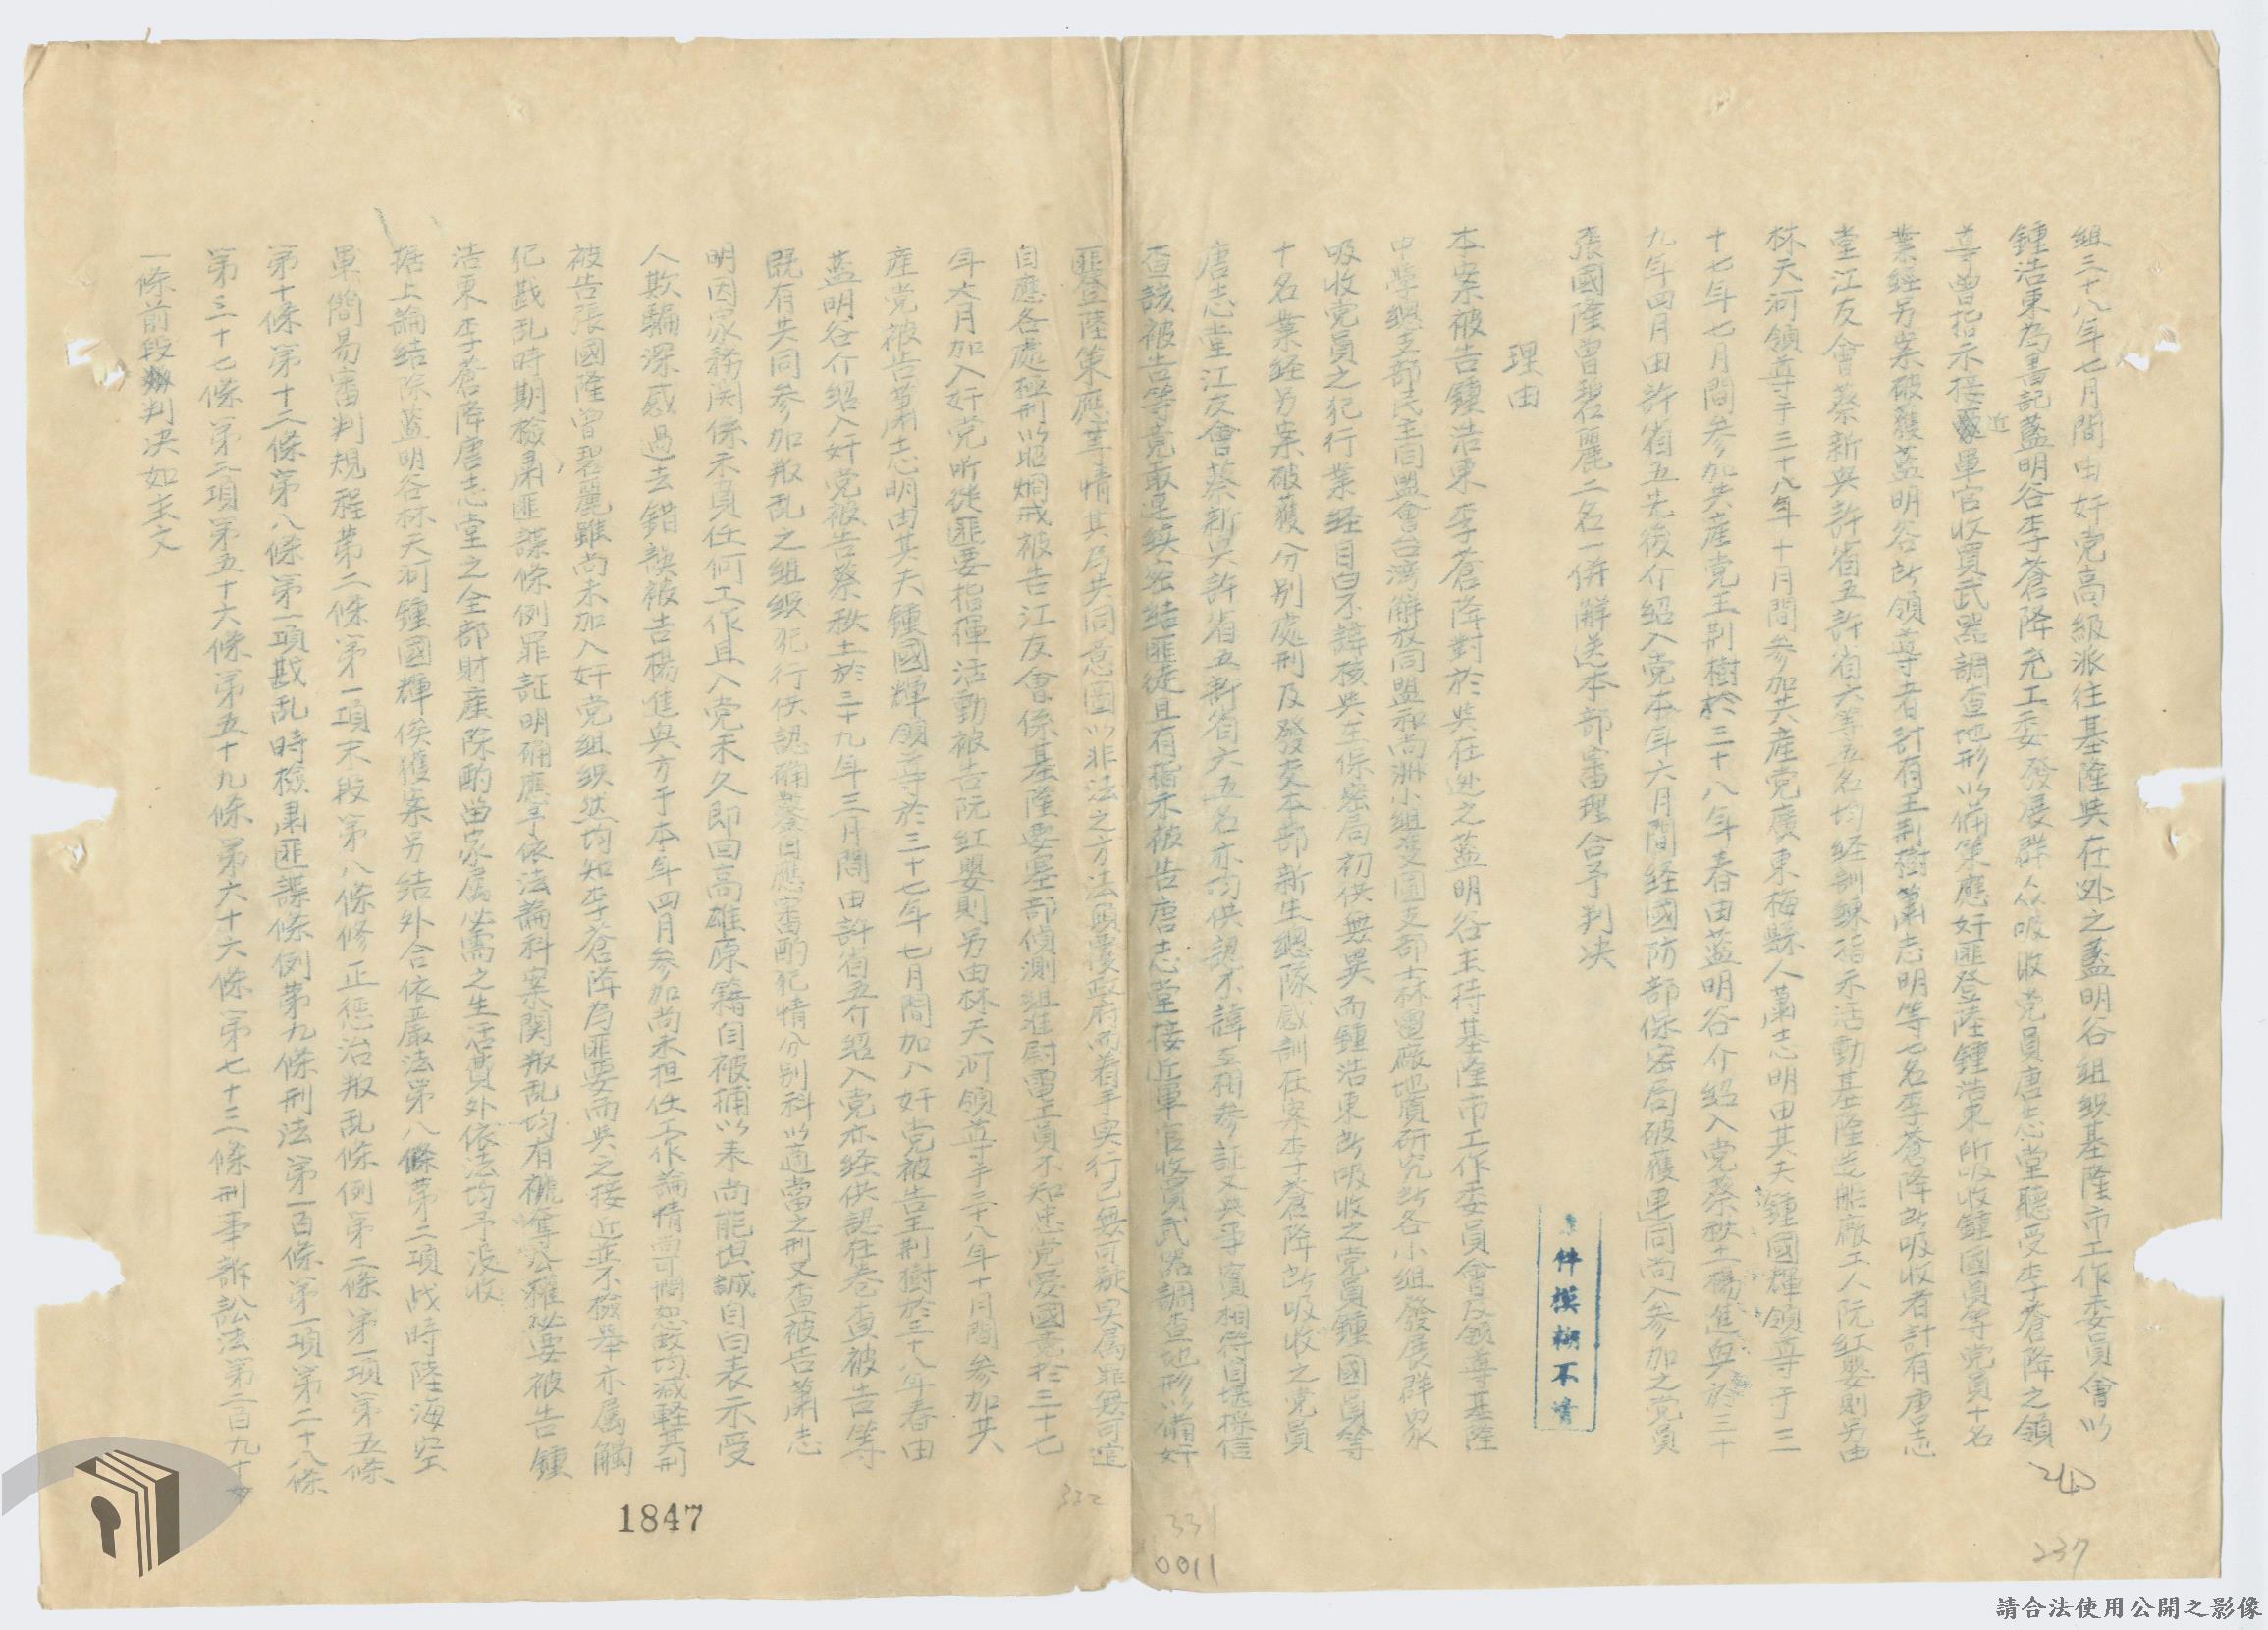 組三十八年七月間由奸党高級派往基隆與在逃之藍明谷組织基隆市工作委員會以
鍾浩東為書記藍明谷李蒼降充工委發展群众吸收党員唐志堂聽受李蒼降之領
导曾指示接近軍官收買武器調查地形以備策應奸匪登陸鍾浩東所吸收鍾國員等党員十名
業経另案破獲藍明谷所領导者計有王荆樹蕭志明等七名李蒼降所吸收者計有唐志
堂江友會蔡新興許省五許省六等五名均経訓練指示活動基隆造船廠工人阮紅嬰則另由
林天河領导于三十八年十月間参加共產党廣東梅縣人蕭志明由其夫鍾國輝領导于三
十七年七月間参加共產党王荆樹於三十八年春由藍明谷介紹入党蔡秋土楊進興於三十
九年四月由許省五先後介紹入党本年六月間経國防部保密局破獲連同尚未参加之党員
張國隆曾碧麗二名一併解送本部審理合予判决
理由
本案被告鍾浩東李蒼降對於與在逃之藍明谷主持基隆市工作委員會及領导基隆
中學總支部民主同盟會台湾解放同盟和尚洲小組雙園支部士林電廠地質研究所各小組發展群眾
吸收党員之犯行業経自白不諱核與在保密局初供無異而鍾浩東所吸收之党員鍾國員等
十名業経另案破獲分别處刑及發交本部新生總隊感訓在案李蒼降所吸收之党員
唐志堂江友會蔡新興許省五許省六五名亦均供認不諱互相参証又與事實相符自堪採信
查該被告等竟敢連续密结匪徒且有指示被告唐志堂接近軍官收買武器調查地形以備奸
匪登陸策應等情其為共同意圖以非法之方法顛覆政府而着手实行已無可疑实属罪無可逭
自應各處極刑以昭炯戒被告江友會係基隆要塞部偵測組准尉電工員不知忠党爱國竟於三十七
年六月加入奸党听從匪要指揮活動被告阮紅嬰則另由林天河領导于三十八年十月間参加共
產党被告蕭志明由其夫鍾國輝領导於三十七年七月間加入奸党被告王荆樹於三十八年春由
藍明谷介紹入奸党被告蔡秋土於三十九年三月間由許省五介紹入党亦経供認在卷查被告等
既有共同参加叛乱之組织犯行供認确鑿自應審酌犯情分别科以適當之刑又查被告蕭志
明因家務関係未負任何工作且入党未久即回高雄原籍自被捕以来尚能坦誠自白表示受
人欺騙深感過去錯誤被告楊進興方于本年四月参加尚未担任工作論情尚可憫恕故均减輕其刑
被告張國隆曾碧麗雖尚未加入奸党組织然均知李蒼降為匪要而與之接近並不檢舉亦属觸
犯戡乱時期檢肃匪諜條例罪証明确應予依法論科案関叛乱均有褫奪公權必要被告鍾
浩東李蒼降唐志堂之全部財産除酌留家属必需之生活費外依法均予没收
据上論结除藍明谷林天河鍾國輝俟獲案另结外合依嚴法第八條第二項战時陸海空
軍簡易審判規程第二條第一項末段第八條修正惩治叛乱條例第二條第一項第五條
第十條第十二條第八條第一項戡乱時檢肃匪諜條例第九條刑法第一百條第一項第二十八條
第三十七條第二項第五十六條第五十九條第六十六條第七十三條刑事訴訟法第二百九十
一條前段判决如主文
件模糊不清
240
237
331
0011
332
1847
請合法使用公開之影像